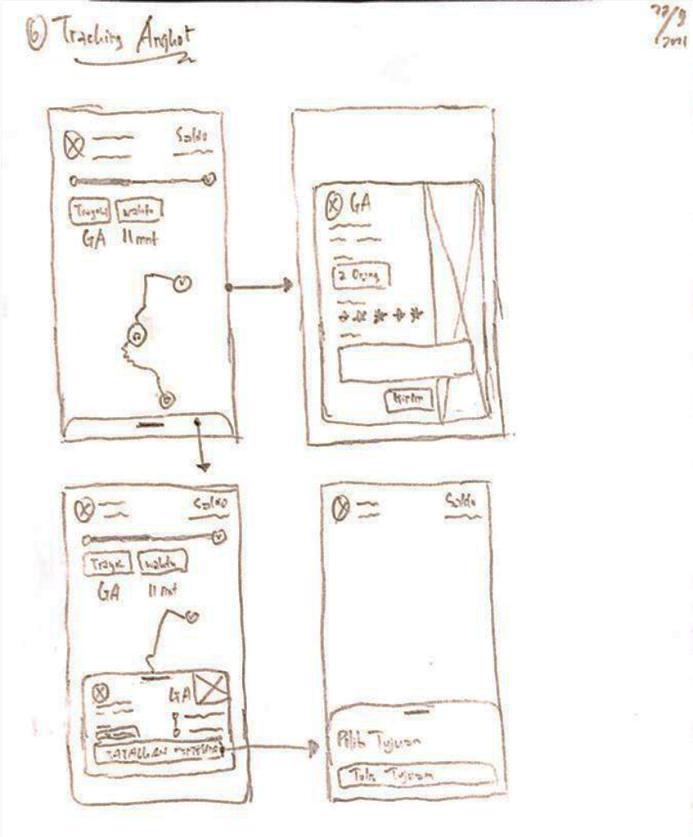 6 Tracking Angkot
Saldo
Trayek Waktu
GA 11 mnt
GA
2 Orang
Kirim
Saldo
Trayek Waktu
GA 11 mnt
GA
BATALKAN
Saldo
Pilih Tujuan
Tulis Tujuan